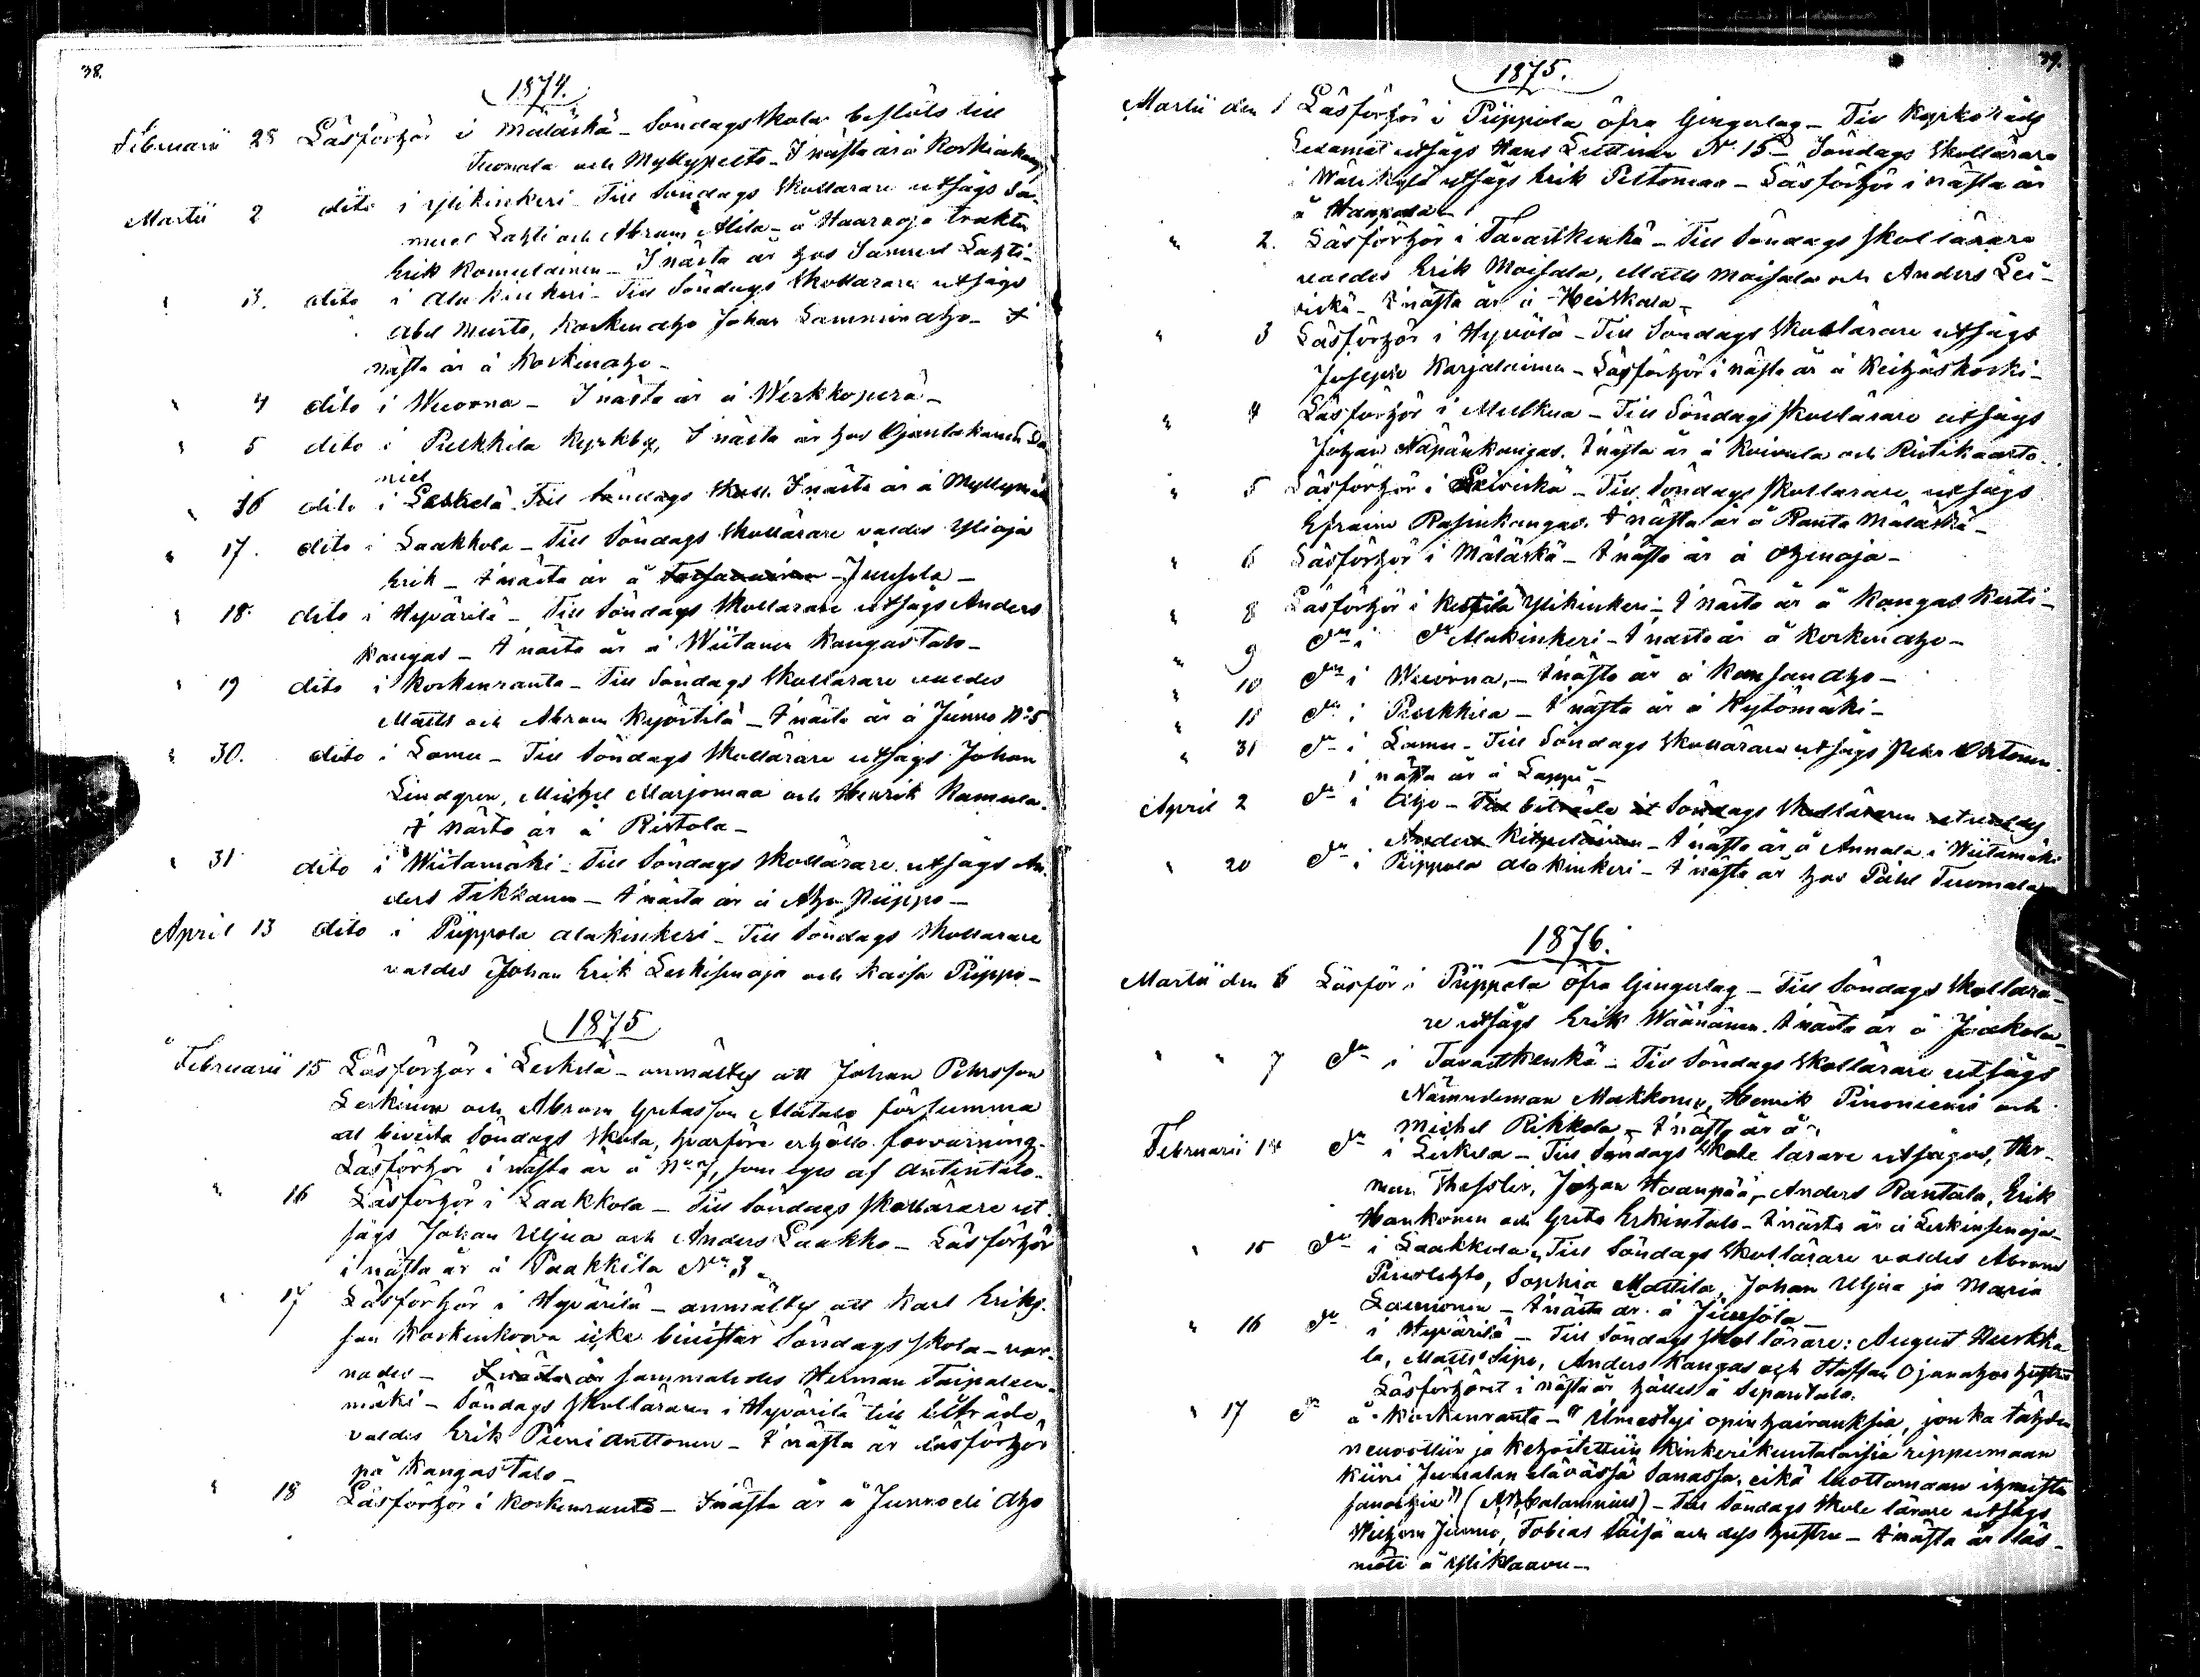 38.
1874.
Februarii 28 Läsförhör i Mäläskä - Söndagsskola beslöts till
Tuomala och Myllypelto - I nästa år å Korkiakangas
Martii 2 dito i Ylikinkeri - Till Söndags Skollärare utsågs Sa-
muel Lahti och Abram Alila - å Haaraoja trakten
Erik Komulainen - I nästa år hos Samuel Lahti -
" 3. dito i Alakinkeri - Till Söndags Skollärare utsågs
Abel Murto, Korkenaho Johan Lamminaho - I
nästa år å Korkinaho -
" 4 dito i Wuorna - I nästa år å Werkkoperä -
" 5 dito i Pulkkila Kyrkby, I nästa år hos Ojantakanen Da
niel
" 16 dito i Leskelä. Till Söndags Skoll. I nästa år å Myllymäki
" 17. dito i Laakkola - Till Söndags Skollärare valdes Ylioja
Erik - I nästa år å Junsola -
" 18 dito i Hyvärilä - Till Söndags Skollärare utsågs Anders
Kangas - I nästa år å Wiitanen Kangastalo -
" 19 dito i Korkenranta - Till Söndags Skollärare valdes
Matts och Abram Kyöstilä - I nästa år å Junno No 5
" 30. dito i Lamu - Till Söndags Skollärare utsågs Johan
Lindgren, Michel Marjomaa och Henrik Kamula.
I nästa år å Ristola -
" 31 dito i Wiitamäki - Till Söndags Skollärare utsågs An-
ders Tikkanen - I nästa år å Aho Piippo -
April 13 dito i Piippola Alakinkeri - Till Söndags Skollärare
valdes Johan Erik Leskisenoja och Kaisa Piippo -
1875
Februarii 15 Läsförhör i Leskelä - anmältes att Johan Pehrsson
Leskinen och Abram Gretasson Alatalo försumma
att bivista Söndags Skola, hvarföre erhöllo förvarning.
Läsförhör i nästa år å No 7, som eges af Antintalo.
" 16 Läsförhör i Laakkola - Till Söndags Skollärare ut-
sågs Johan Uljua och Anders Laakko - Läsförhör
i nästa år å Paakkila No 3 -
" 17 Läsförhör i Hyvärilä - anmältes att Karl Eriks-
son Korkenkorva icke bivistar Söndagsskola - var-
nades - I nästa år sammaledes Herman Taipaleen-
mäki - Söndags Skolläraren i Hyvärilä till biträde
valdes Erik Pieni Anttonen - I nästa år Läsförhör
på Kangastalo -
" 18 Läsförhör i Korkenranta - I nästa år å Junnoeli Aho
39.
1875.
Martii den 1 Läsförhör i Piippola öfra Gingerlag - Till Kyrkoråds
Ledamot utsågs Hans Luttinen No 15 - Söndags Skollärare
i Wärikylä utsågs Erik Peltomaa - Läsförhör i nästa år
å Haapala -
" 2. Läsförhör i Tavastkenkä - Till Söndags Skollärare
valdes Erik Moisala, Matts Moisala och Anders Lei-
viskä - I nästa år å Heikkala -
" 3 Läsförhör i Hyvölä - Till Söndags Skollärare utsågs
Joseph Karjalainen - Läsförhör i nästa år å Keihäskoski -
" 4 Läsförhör i Mulkua - Till Söndags Skollärare utsågs
Johan Näpänkangas. I nästa år å Koivula och Ristikaarto.
" 5 Läsförhör i Leiviskä - Till Söndags Skollärare utsågs
Efraim Rasinkangas. I nästa år å Ranta Mäläskä -
" 6 Läsförhör i Mäläskä - I nästa år å Ahenoja -
" 8 Läsförhör i Kestilä Ylikinkeri - I nästa år å Kangas Kerti -
" 9 do i do Alakinkeri - I nästa år å Korkenaho -
" 10 do i Wuorna, - I nästa år å Kansanaho -
" 15 do i Pulkkila - I nästa år å Kytömäki -
" 31 do i Lamu - Till Söndags Skollärare utsågs Pehr Ahtonen.
I nästa år å Lappi -
April 2 do i Aho - Till biträde åt Söndags Skolläraren
Anders - I nästa år å Annala i Wiitamäki
" 20 do i Piippola Alakinkeri - I nästa år hos Påhl Tuomala
1876.
Martii den 6 Läsför i Piippola öfra Gingerlag - Till Söndags Skollära-
re utsågs Erik Wäänänen. I nästa år å Jaakola -
" " 7 do i Tavastkenkä - Till Söndags Skollärare utsågs
Nämndeman Makkonen, Henrik Pinoniemi och
Michel Rikkola - I nästa år å
Februarii 14 do i Leskelä - Till Söndags Skole lärare utsågos, Her-
man Thesslér, Johan Haanpää, Anders Rantala, Erik
Hankonen och Greta Erkintalo - I nästa år å Leskinsenoja -
" 15 do i Laakkola, Till Söndags Skollärare valdes Abram
Pirneslehto, Sophia Mattila, Johan Uljua ja Maria
Laurionen - I nästa år å Junsola
" 16 do i Hyvärilä - Till Söndags Skollärare: August Hurkka
la, Matts Sipo, Anders Kangas och Staffan Ojanahos hustru
Läsförhöret i nästa år hålles å Sepäntalo.
" 17 do å Korkenranta - "Ilmestyi opin hairauksia, jonka tähden
neuvottiin ja kehoitettiin kinkerikuntalaisia rippumaan
kiini Jumalan elävässä Sanassa, eikä luottamaan ihmisten
sanoihin" (AW Calamnius) - Till Söndags Skole lärare utsågs
Wilhem Junno, Tobias Saisa och dess hustru - I nästa år läs-
möte å Yliklaavu -